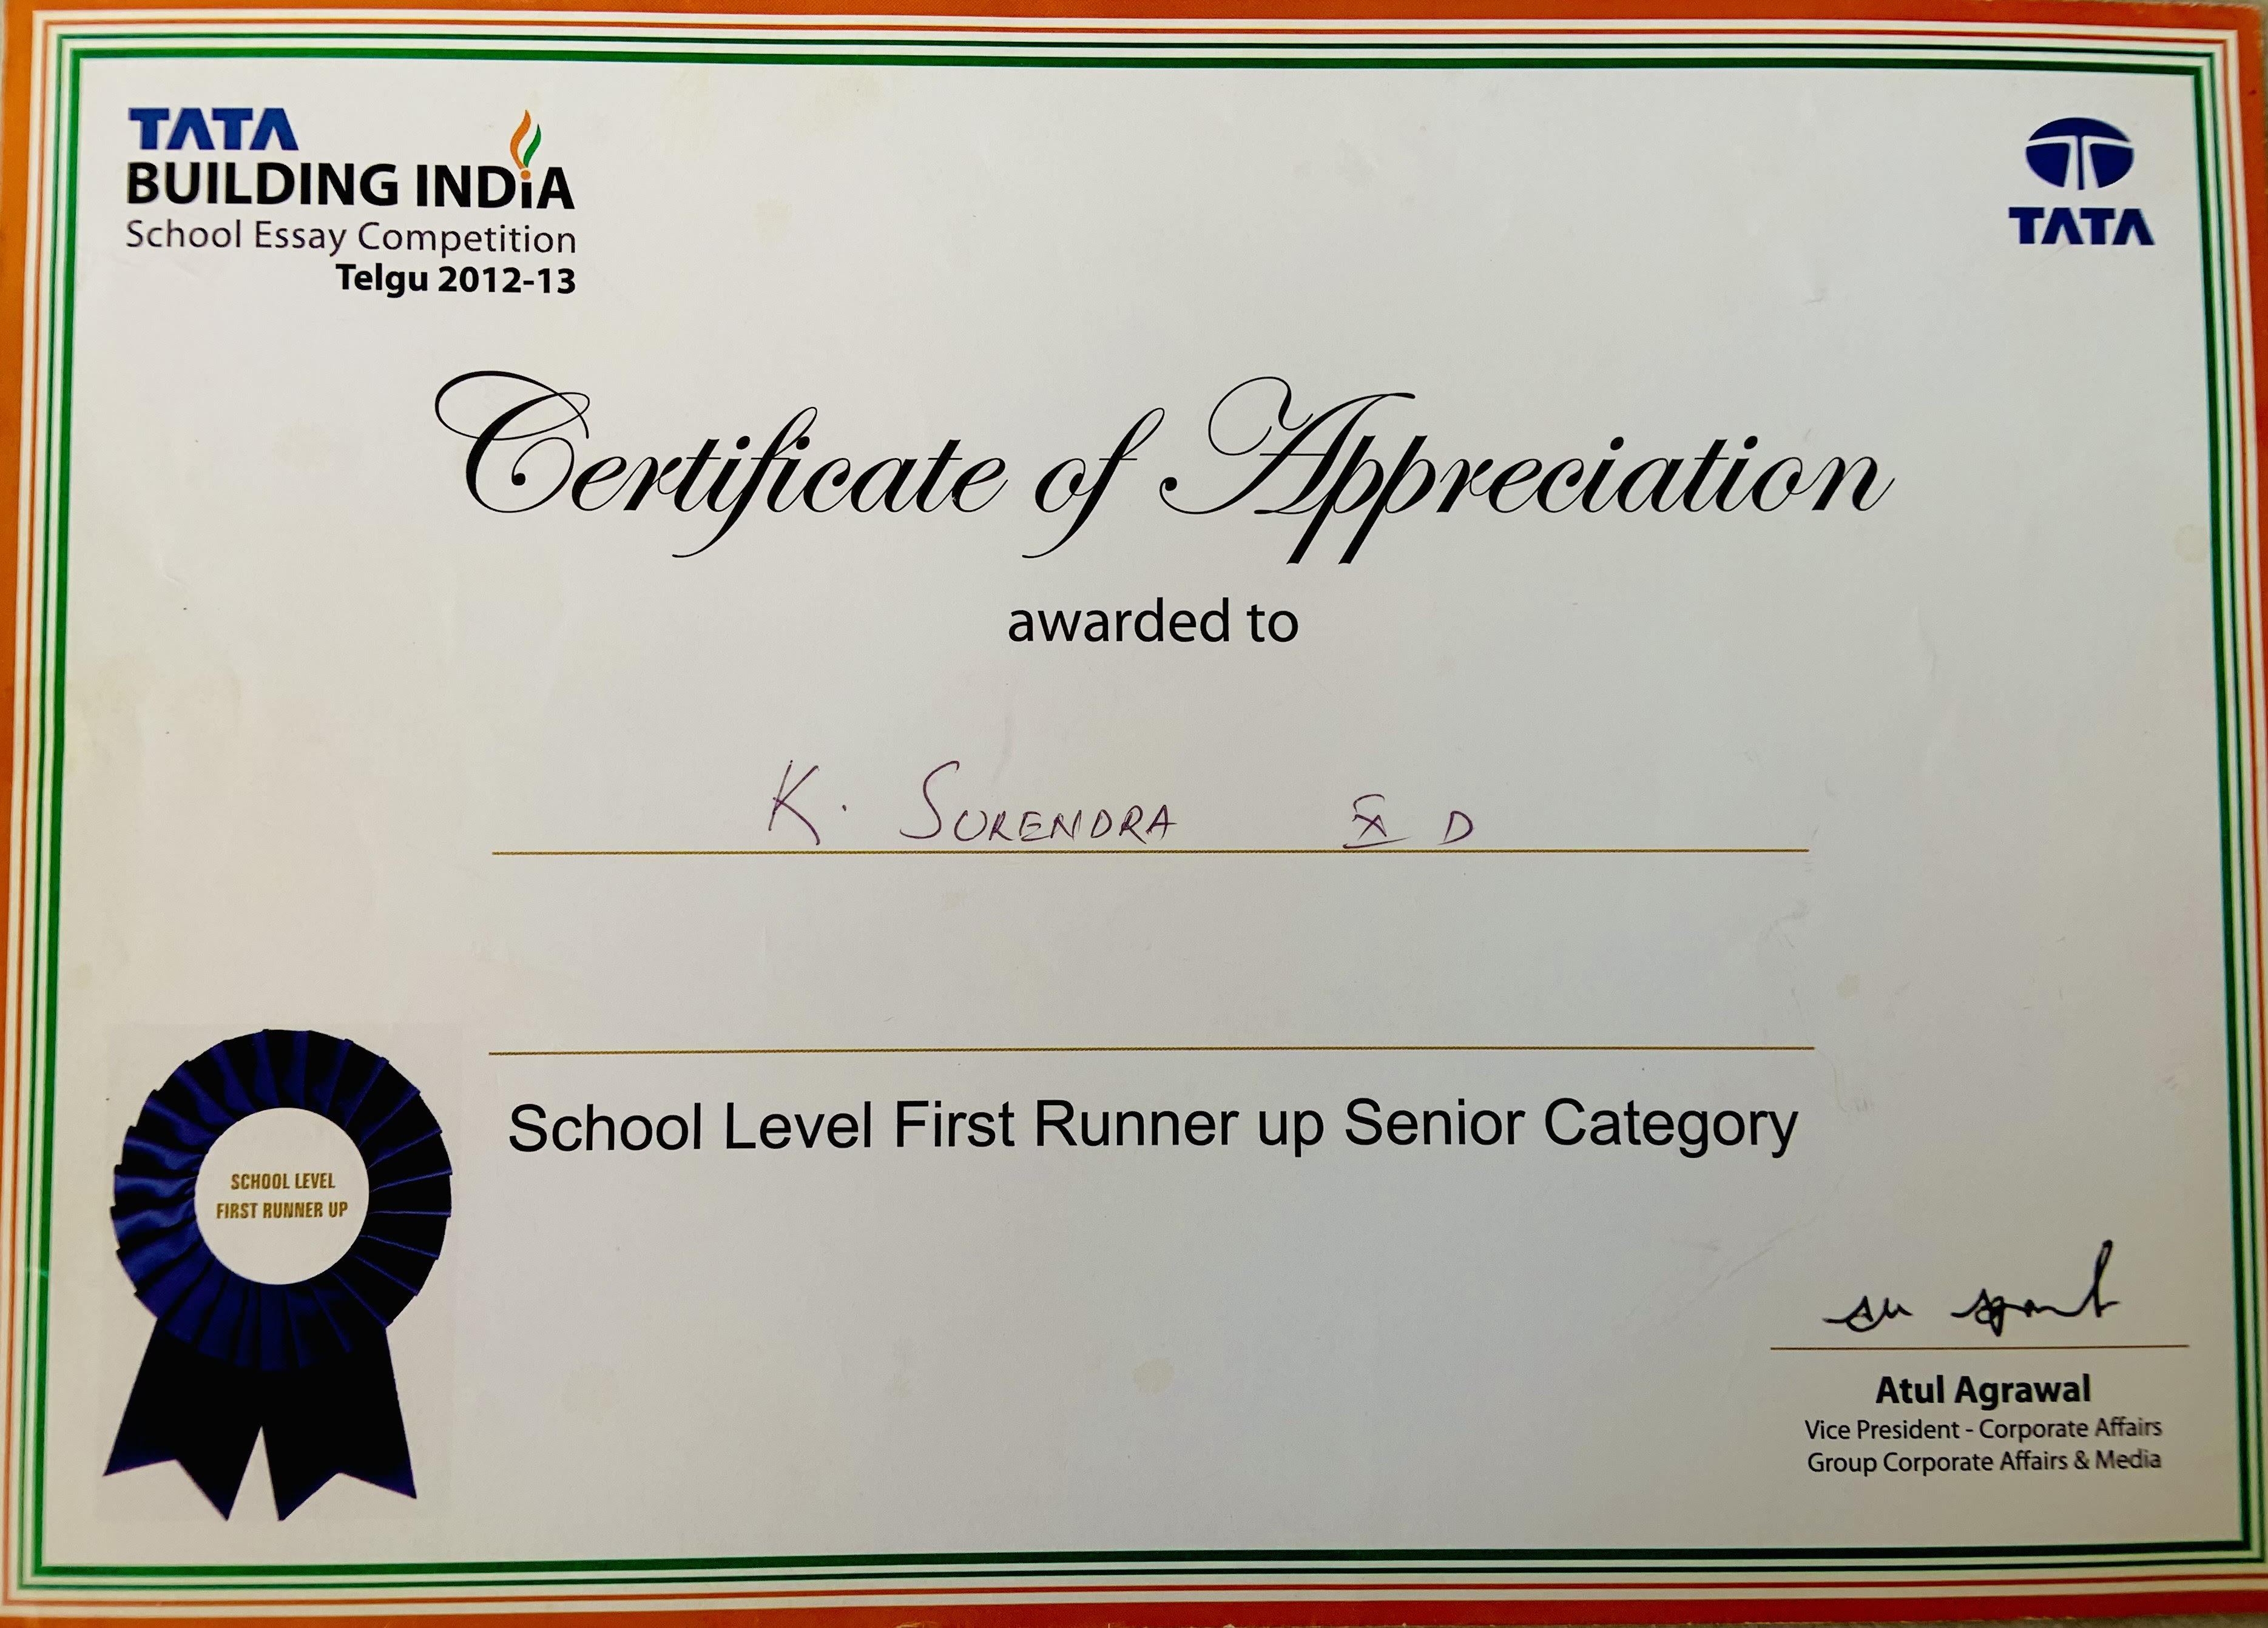 TATA
BUILDING INDiA
School Essay Competition
Telgu 2012-13
TATA
Certificate of Appreciation
awarded to
K. SURENDRA X D
School Level First Runner up Senior Category
SCHOOL LEVEL
FIRST RUNNER UP
Atul Agrawal
Vice President - Corporate Affairs
Group Corporate Affairs & Media